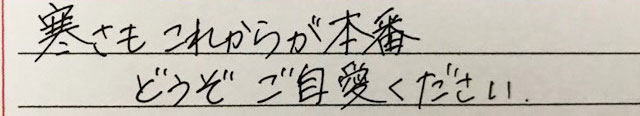 寒さもこれからが本番
どうぞご自愛ください.